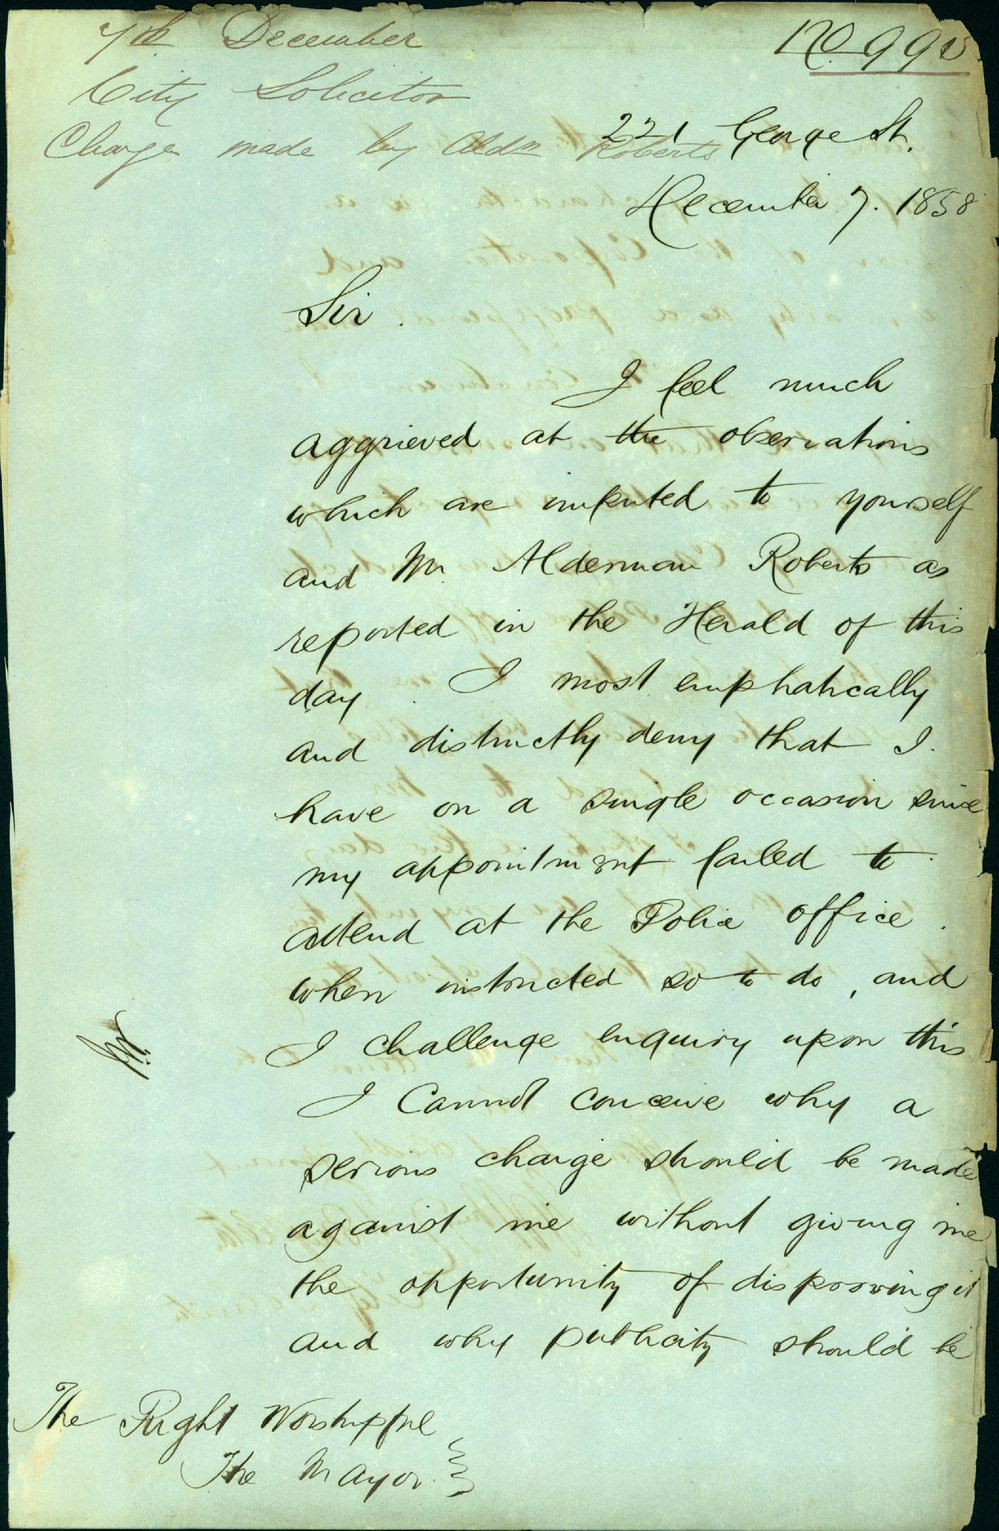 7th December
No 990
City Solicitor
Charge made by Aldn Roberts
221 George St.
December 7. 1858
Sir.
I feel much
aggrieved at the observations
which are imputed to yourself
and Mr. Alderman Roberts as
reported in the Herald of this
day. I most emphatically
and distinctly deny that I
have on a single occasion since
my appointment failed to
attend at the Police Office
when instructed so to do, and
I challenge enquiry upon this
I cannot conceive why a
serious charge should be made
against me without giving me
the opportunity of disproving it
and why publicity should be
The Right Worshipful
The Mayor